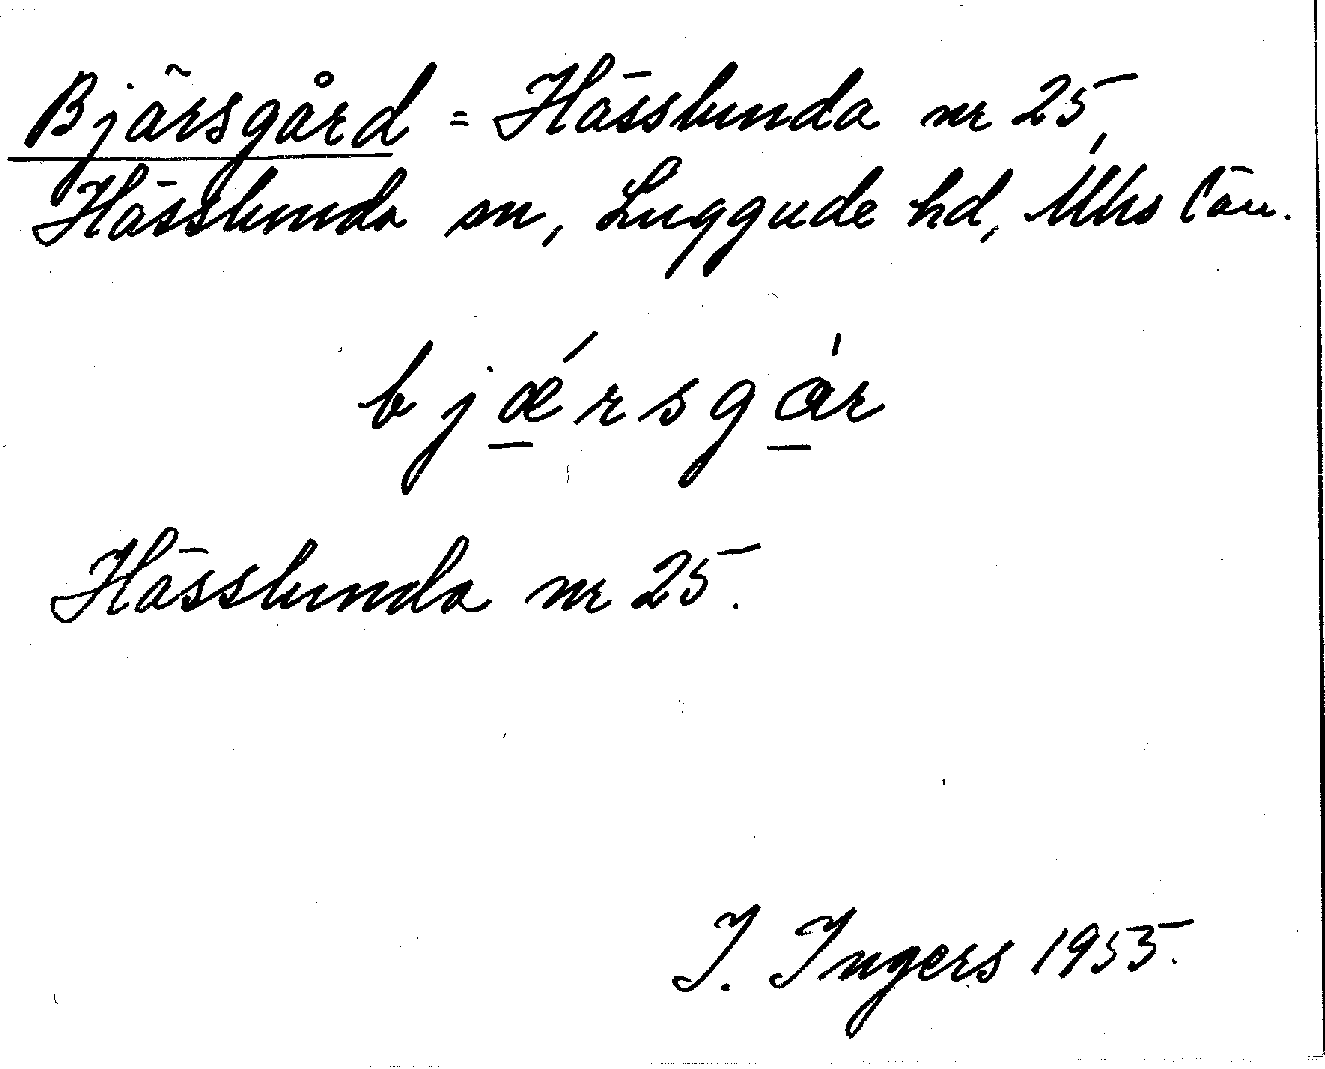 Bjärsgård = Hässlunda nr 25,
Hässlunda sn, Luggude hd, Mhs län.
bjǽ̱rsgȧ̱r
Hässlunda nr 25.
I. Ingers 1955.